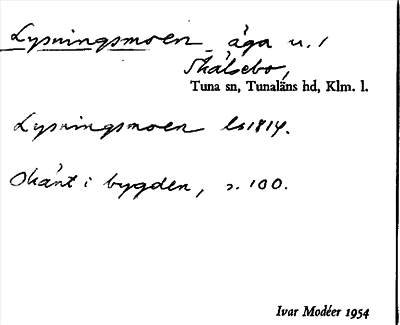 Lysningsmoen äga u. /
Skälsebo,
Tuna sn, Tunaläns hd, Klm. l.
Lysningsmoen ls 1814.
Okänt i bygden, s. 100.
Ivar Modéer 1954